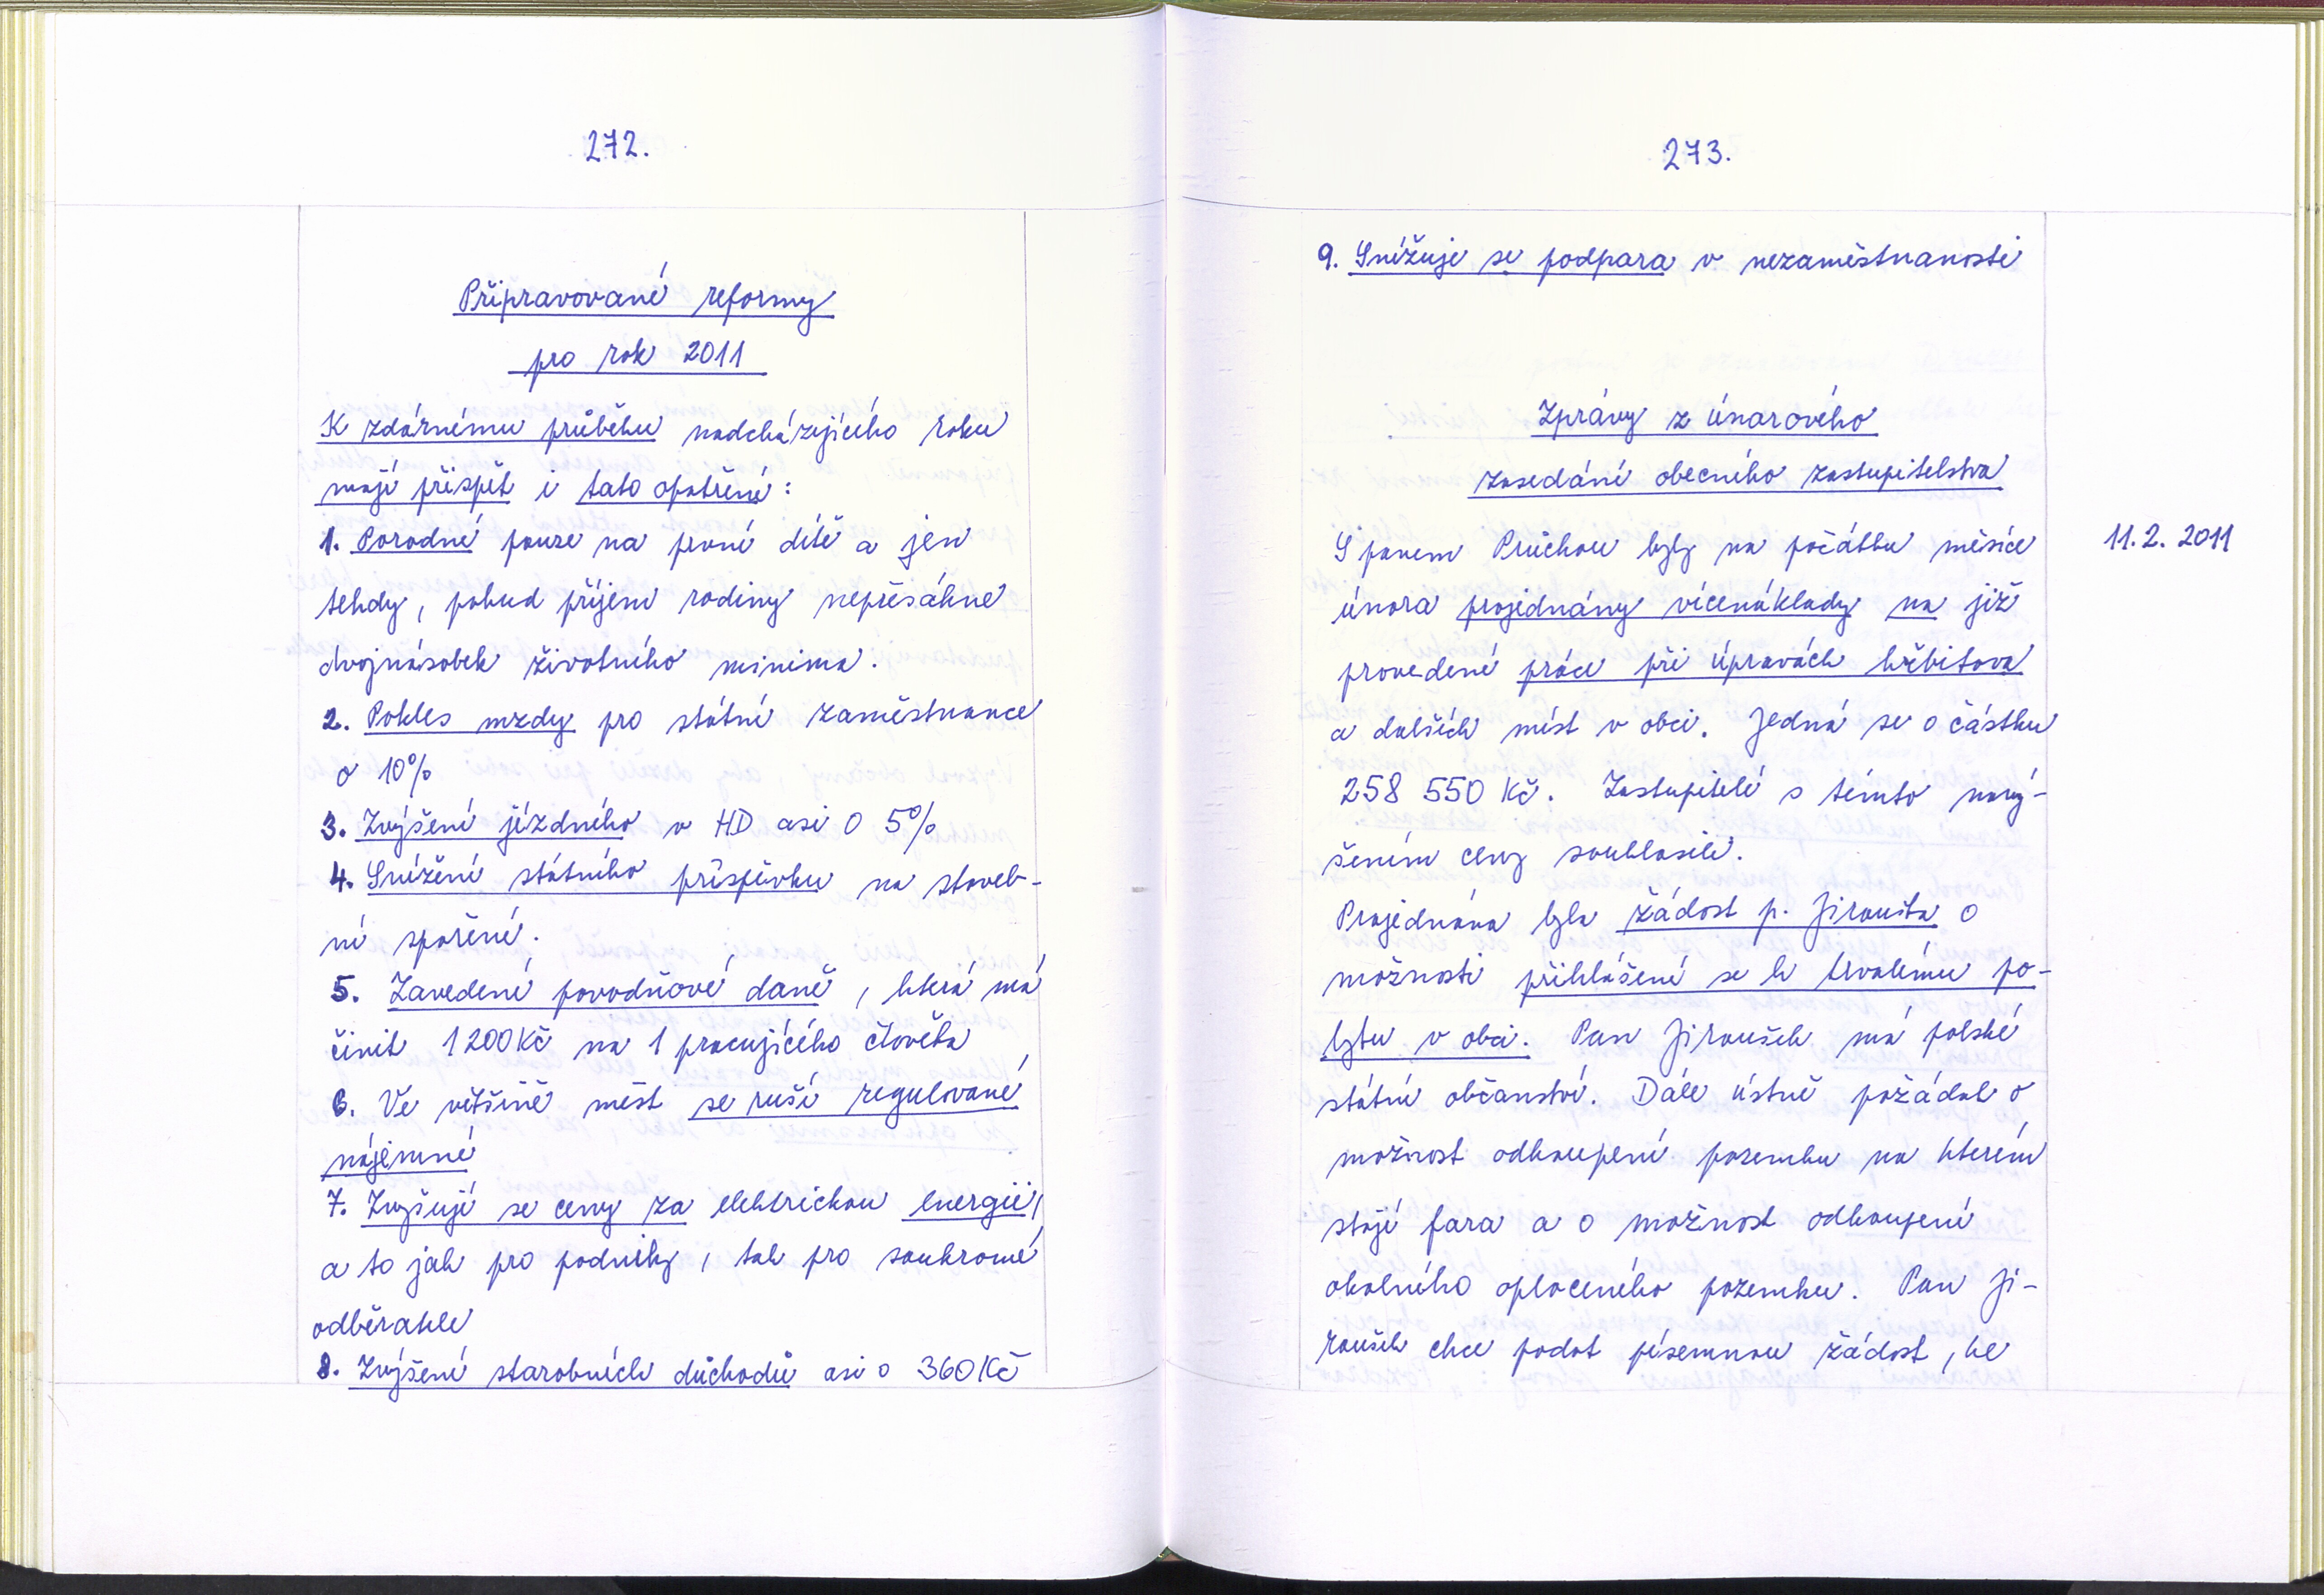 272.
Připravované reformy
pro rok 2011
K zdárnému průběhu nadcházejícího roku
mají přispět i tato opatření:
1. Porodné pouze na první dítě a jen
tehdy, pokud příjem rodiny nepřesáhne
dvojnásobek životního minima.
2. Pokles mzdy pro státní zaměstnance
o 10%
3. Zvýšení jízdného v HD asi o 5%
4. Snížení státního příspěvku na staveb-
ní spoření.
5. Zavedení povodňové daně, která má
činit 1 200 Kč na 1 pracujícího člověka
6. Ve většině měst se ruší regulované
nájemné
7. Zvyšují se ceny za elektrickou energii,
a to jak pro podniky, tak pro soukromé
odběratele
8. Zvýšení starobních důchodů asi o 360 Kč
273.
9. Snižuje se podpora v nezaměstnanosti
Zprávy z únorového
zasedání obecního zastupitelstva
11.2. 2011
S panem Průchou byly na počátku měsíce
února projednány vícenáklady na již
provedené práce při úpravách hřbitova
a dalších míst v obci. Jedná se o částku
258 550 Kč. Zastupitelé s tímto navý-
šením ceny souhlasili.
Projednána byla žádost p. Jirouška o
možnosti přihlášení se k trvalému po-
bytu v obci. Pan Jiroušek má polské
státní občanství. Dále ústně požádal o
možnost odkoupení pozemku na kterém
stojí fara a o možnost odkoupení
okolního oploceného pozemku. Pan Ji-
roušek chce podat písemnou žádost, ke